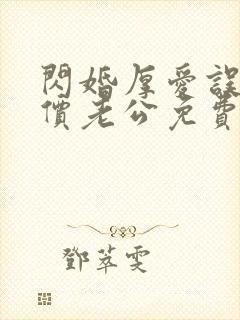 閃婚厚愛誤
價老公免費
鄧萃雯